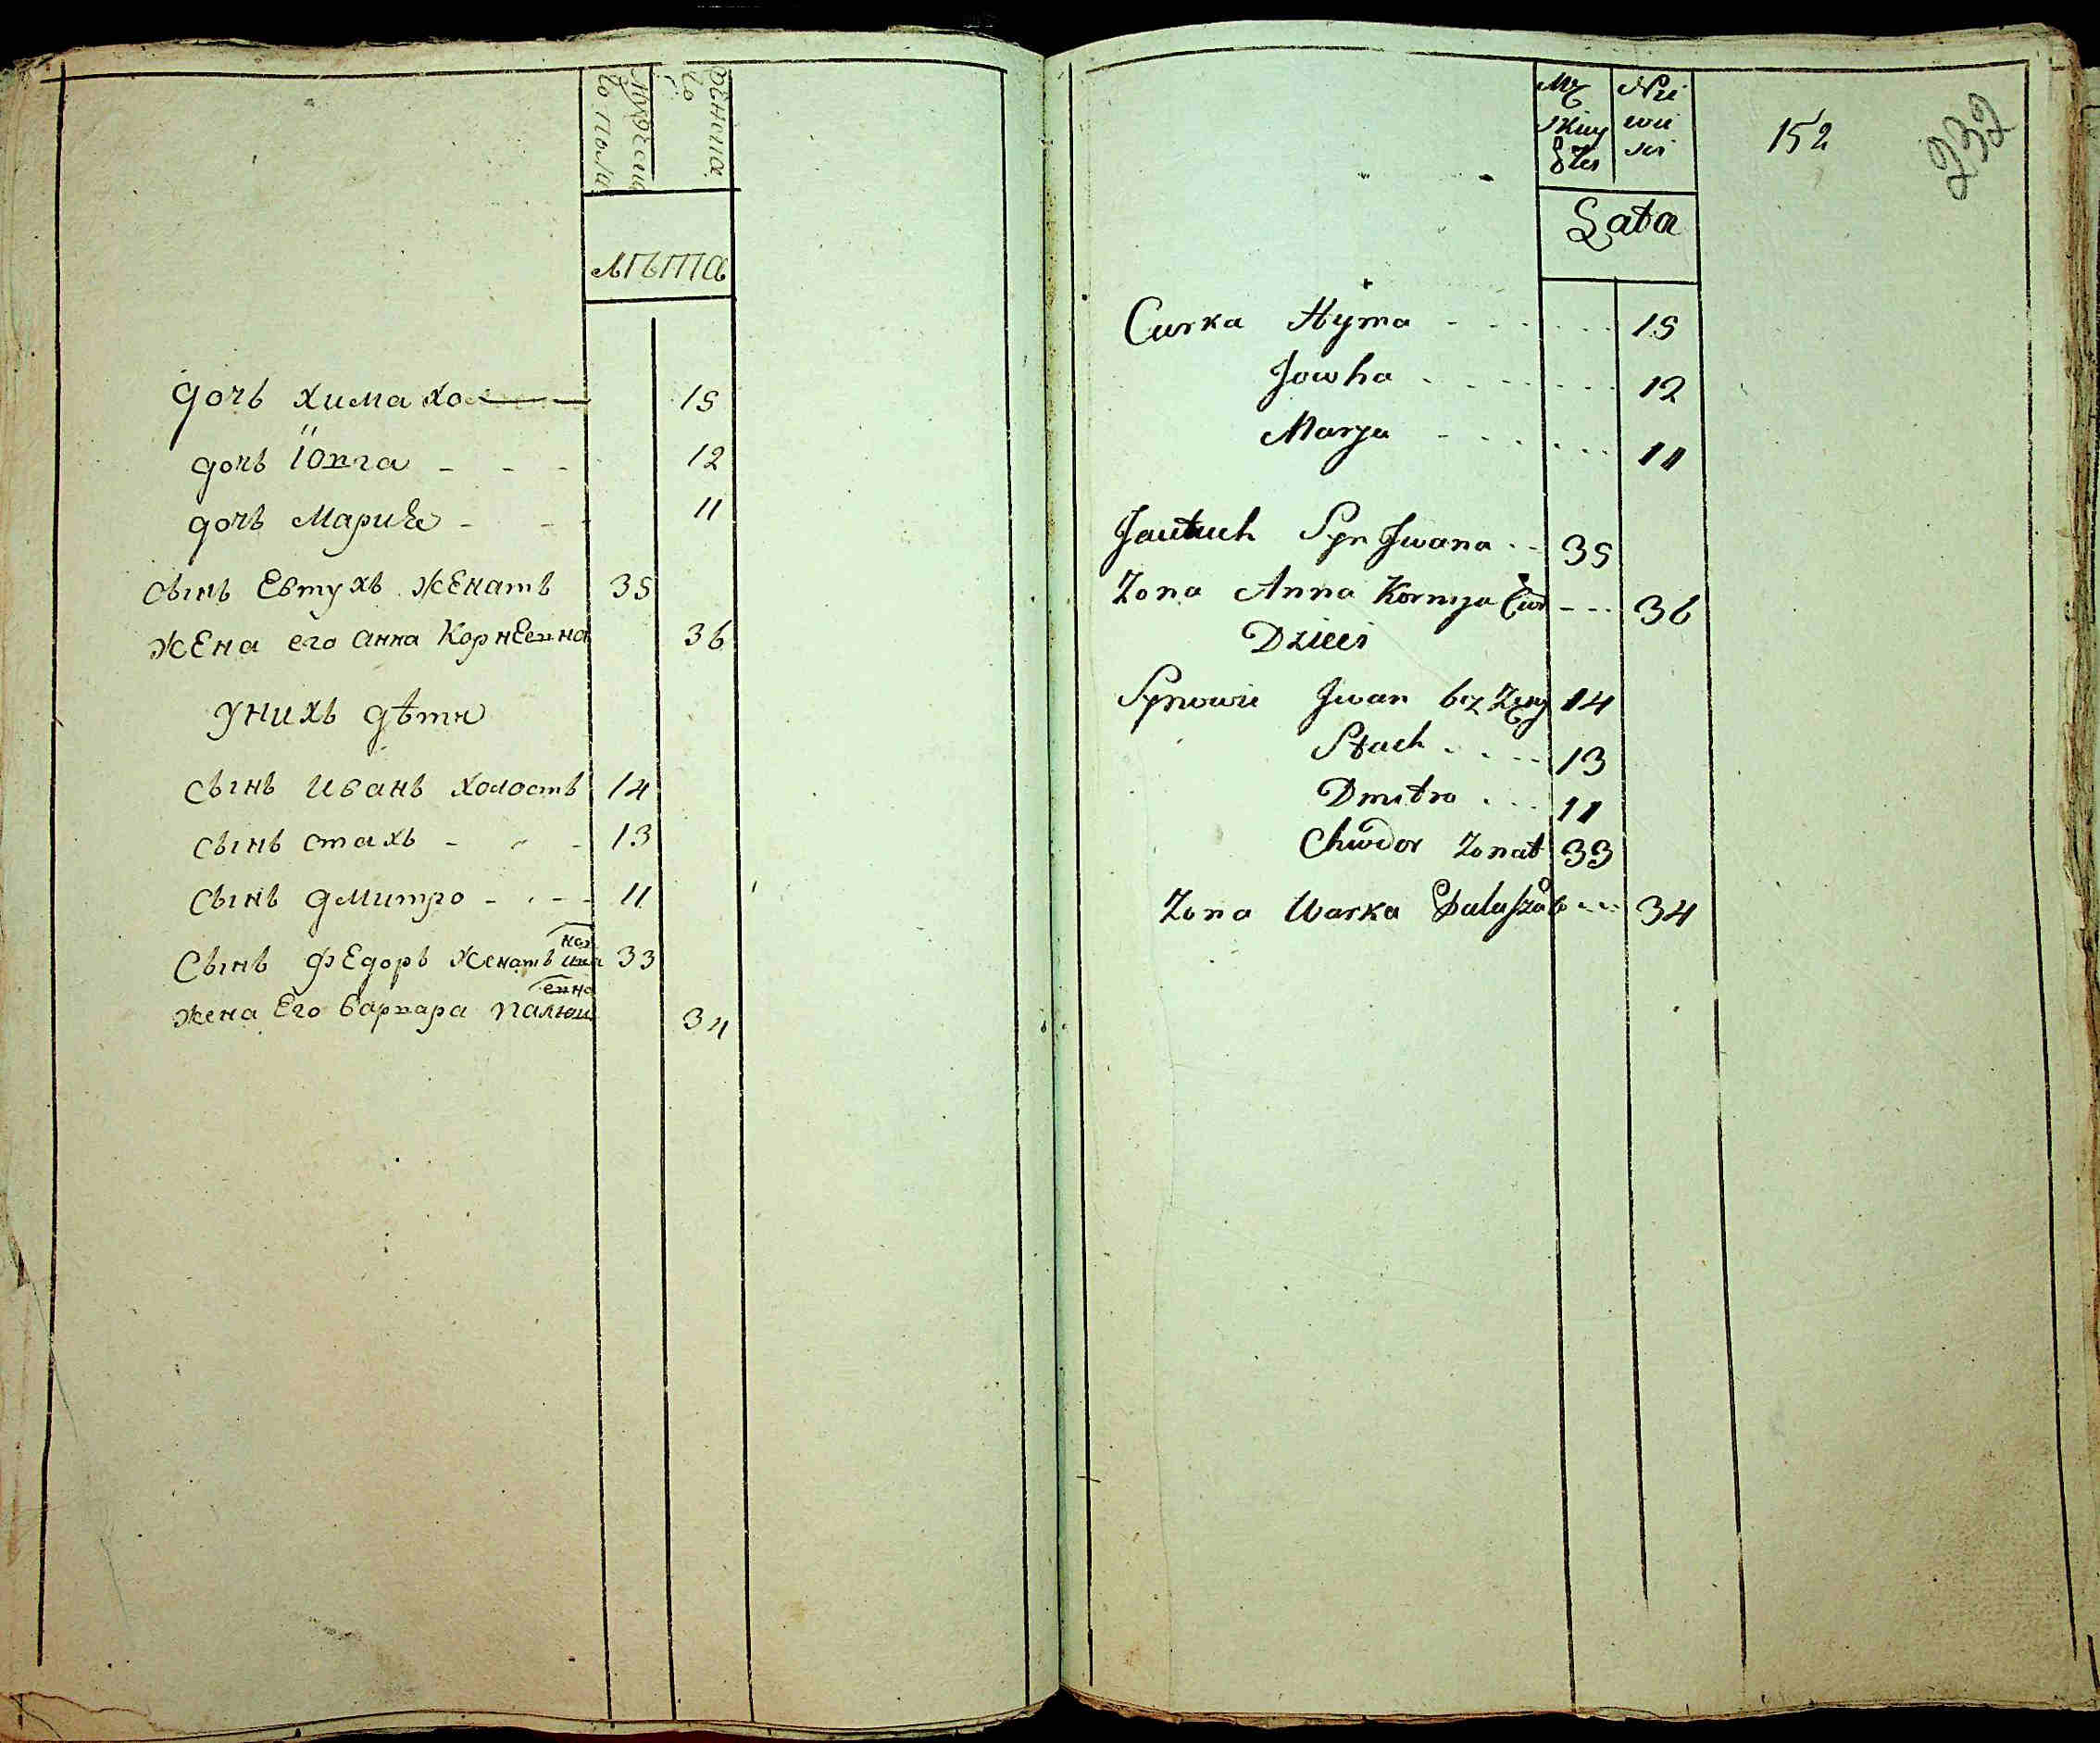 Мужеска
го пола
Женска
го
лѣта
дочь хима хо 15
дочь Ювга - - - 12
дочь Мария - - - 11
сынъ Евтухъ женатъ 35
жена его анна Корнеевна 36
у нихъ дѣти
сынъ иванъ холостъ 14
сынъ стахъ - - - 13
сынъ дмитро - - - - 11
Сынъ федоръ женатъ 33
жена Его варвара 34
Mę Nie
skiey wie
Płci sci
152
232
Łata
Curka Hyma - - - - - - 15
Jowha - - - - - - - 12
Marya - - - - - - - 11
Jautuch Syn Jwana - - 35
Zona Anna Kornyja Cur - - - 36
Dzieci
Synowie Jwan bez Zeny 14
Stach - - - - 13
Dmitro - - - 11
Chwedor Zonat 33
Zona Warka - - - 34